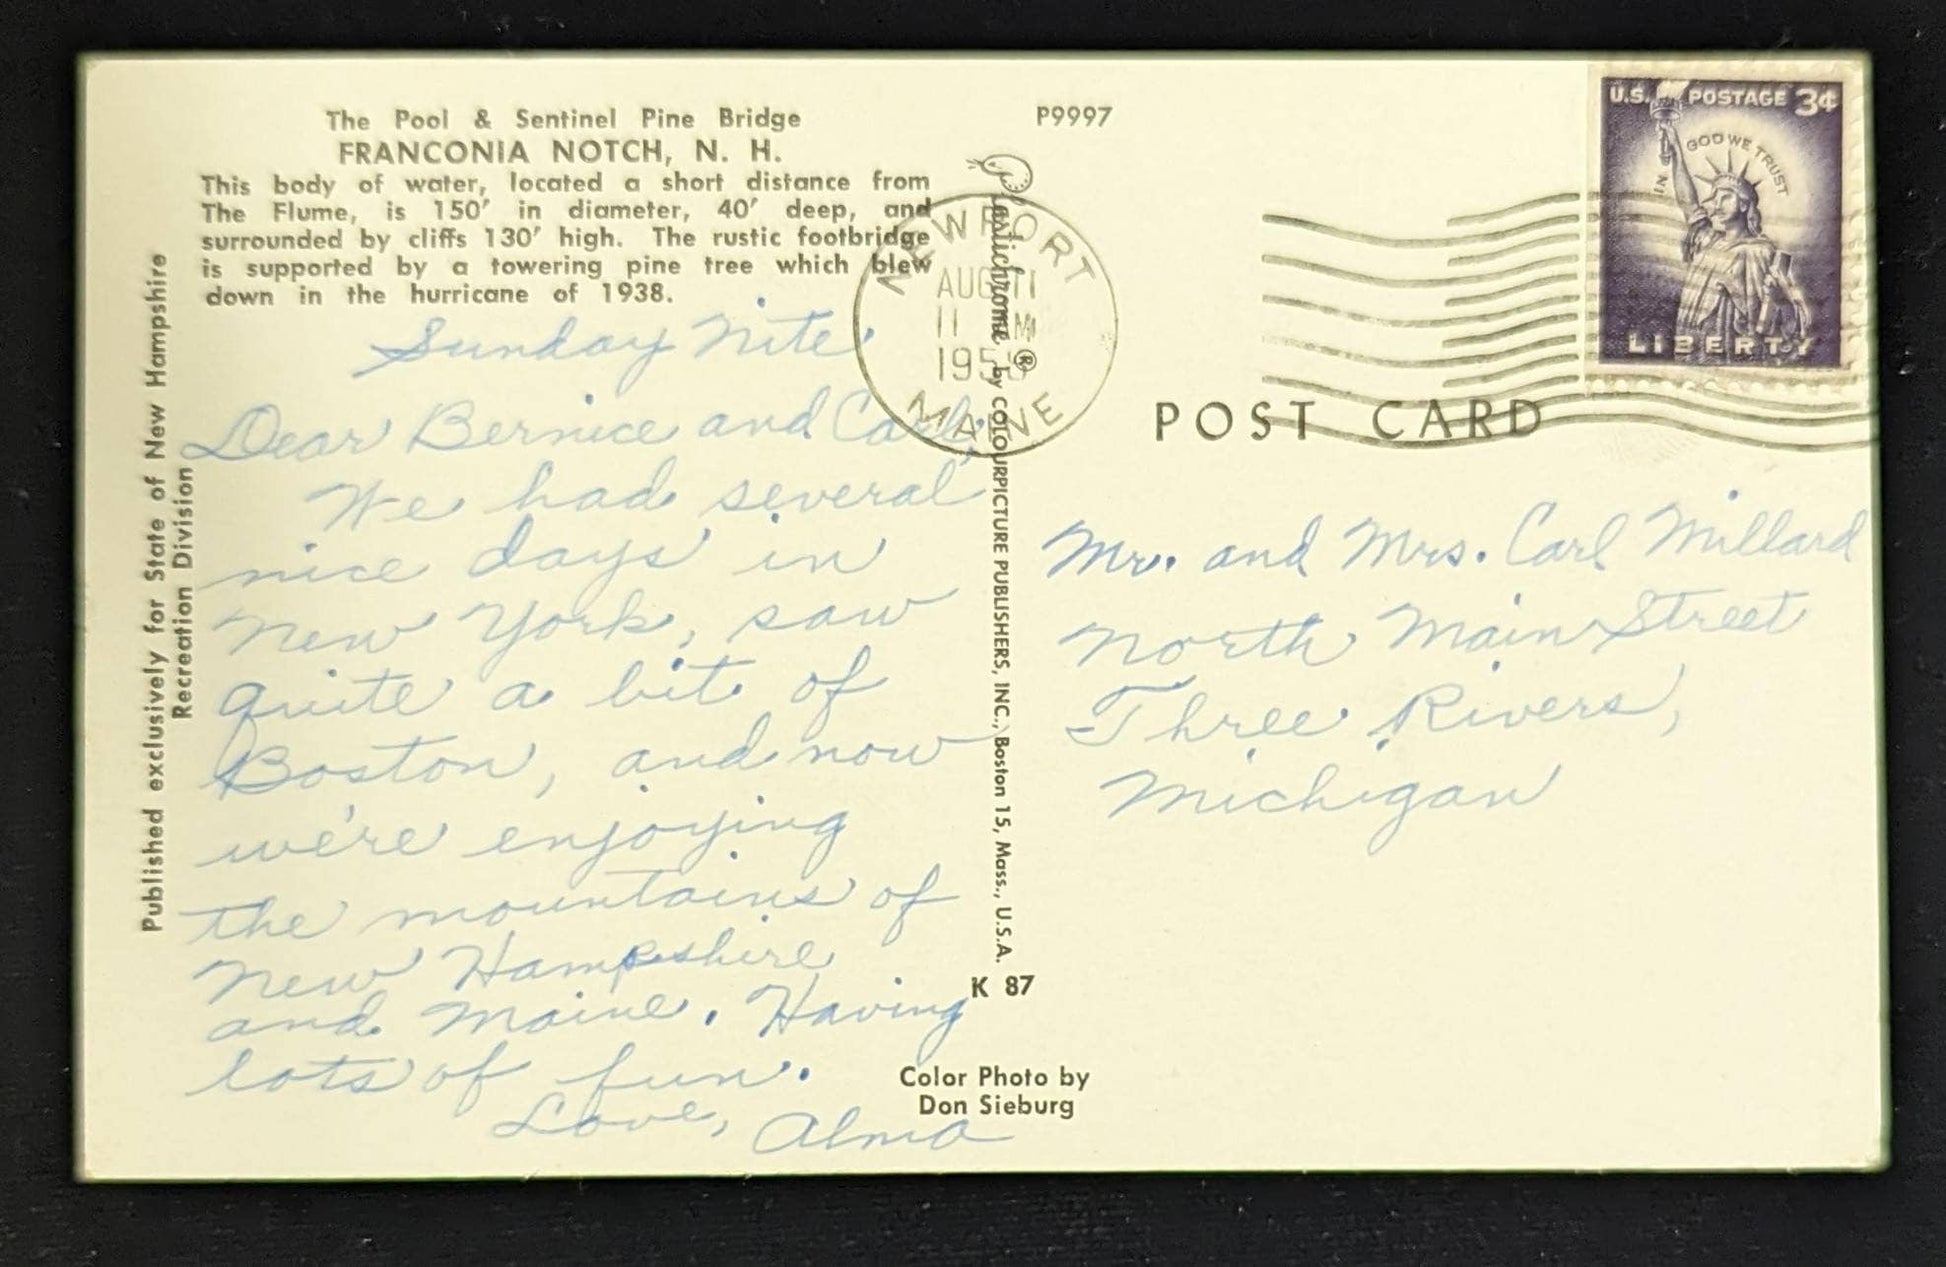 The Pool & Sentinel Pine Bridge
FRANCONIA NOTCH, N. H.
This body of water, located a short distance from
The Flume, is 150′ in diameter, 40′ deep, and
surrounded by cliffs 130′ high. The rustic footbridge
is supported by a towering pine tree which blew
down in the hurricane of 1938.
Published exclusively for State of New Hampshire
Recreation Division
Sunday Nite.
Dear Bernice and Carl,
We had several
nice days in
New York, saw
quite a bit of
Boston, and now
we're enjoying
the mountains of
New Hampshire
and Maine. Having
lots of fun.
Love, Alma
Plastichrome ® by COLOURPICTURE PUBLISHERS, INC., Boston 15, Mass., U.S.A.
K 87
Color Photo by
Don Sieburg
P9997
NEWPORT
AUG 11
11 M
MAINE
U.S. POSTAGE 3¢
IN GOD WE TRUST
LIBERTY
POST CARD
Mr. and Mrs. Carl Millard
North Main Street
Three Rivers,
Michigan